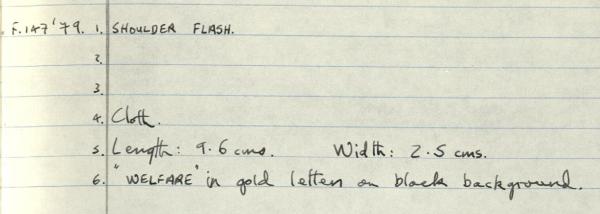 F.147'79. 1. SHOULDER FLASH.
2.
3.
4. Cloth.
5. Length: 9.6 cms. Width: 2.5 cms.
6. "WELFARE" in gold letters on black background.